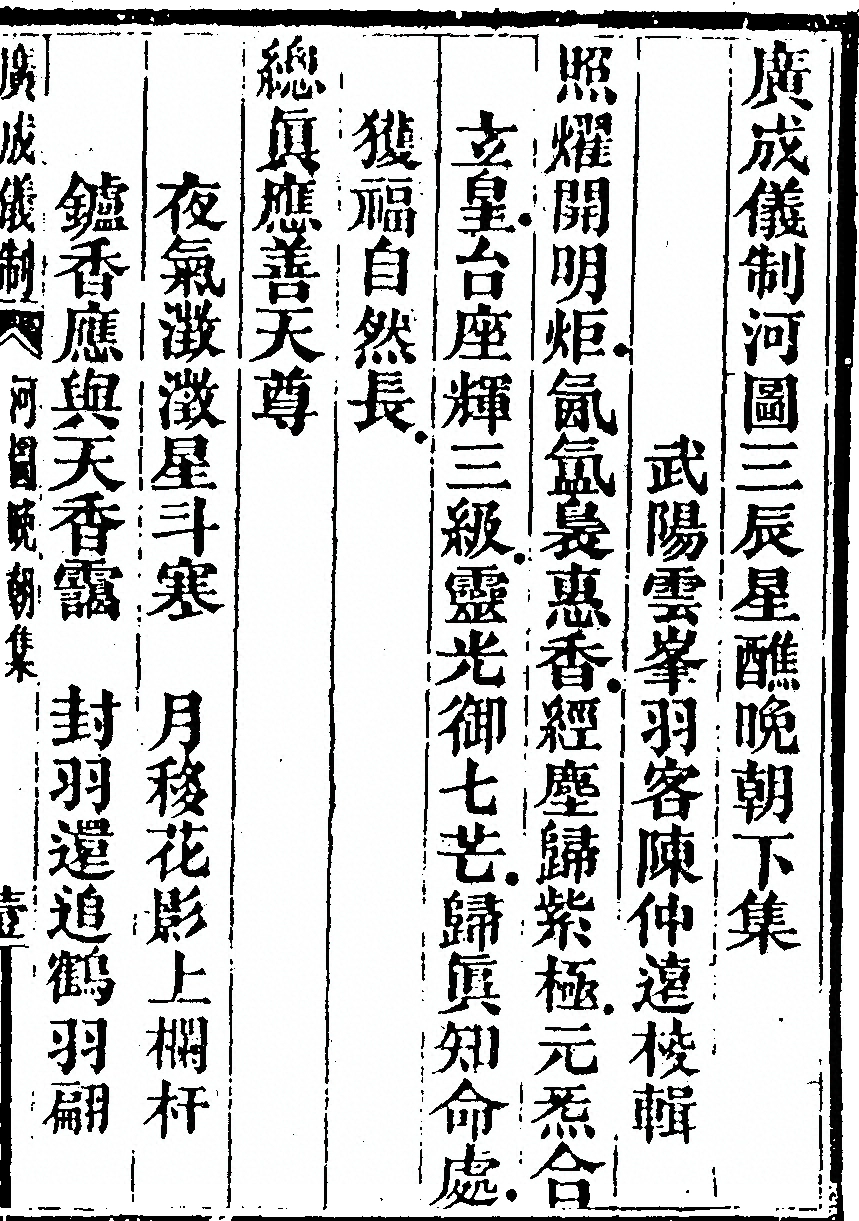 廣成儀制河圖三辰星醮晚朝下集
武陽雲峯羽客陳仲遠校輯
照耀開明炬氤氳裊惠香經塵歸紫極元炁合
立皇台座輝三級靈光御七芒歸眞知命處
獲福自然長
總眞應善天尊
夜氣澂澂星斗寒　月移花影上欄杆
鑪香應與天香靄　封羽還追鶴羽翩
廣成儀制　河圖晚朝集　壹